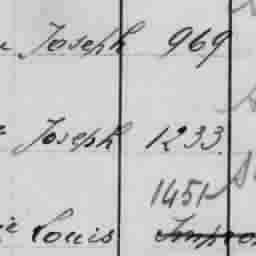 Joseph 969
Joseph 1233
1451
Louis